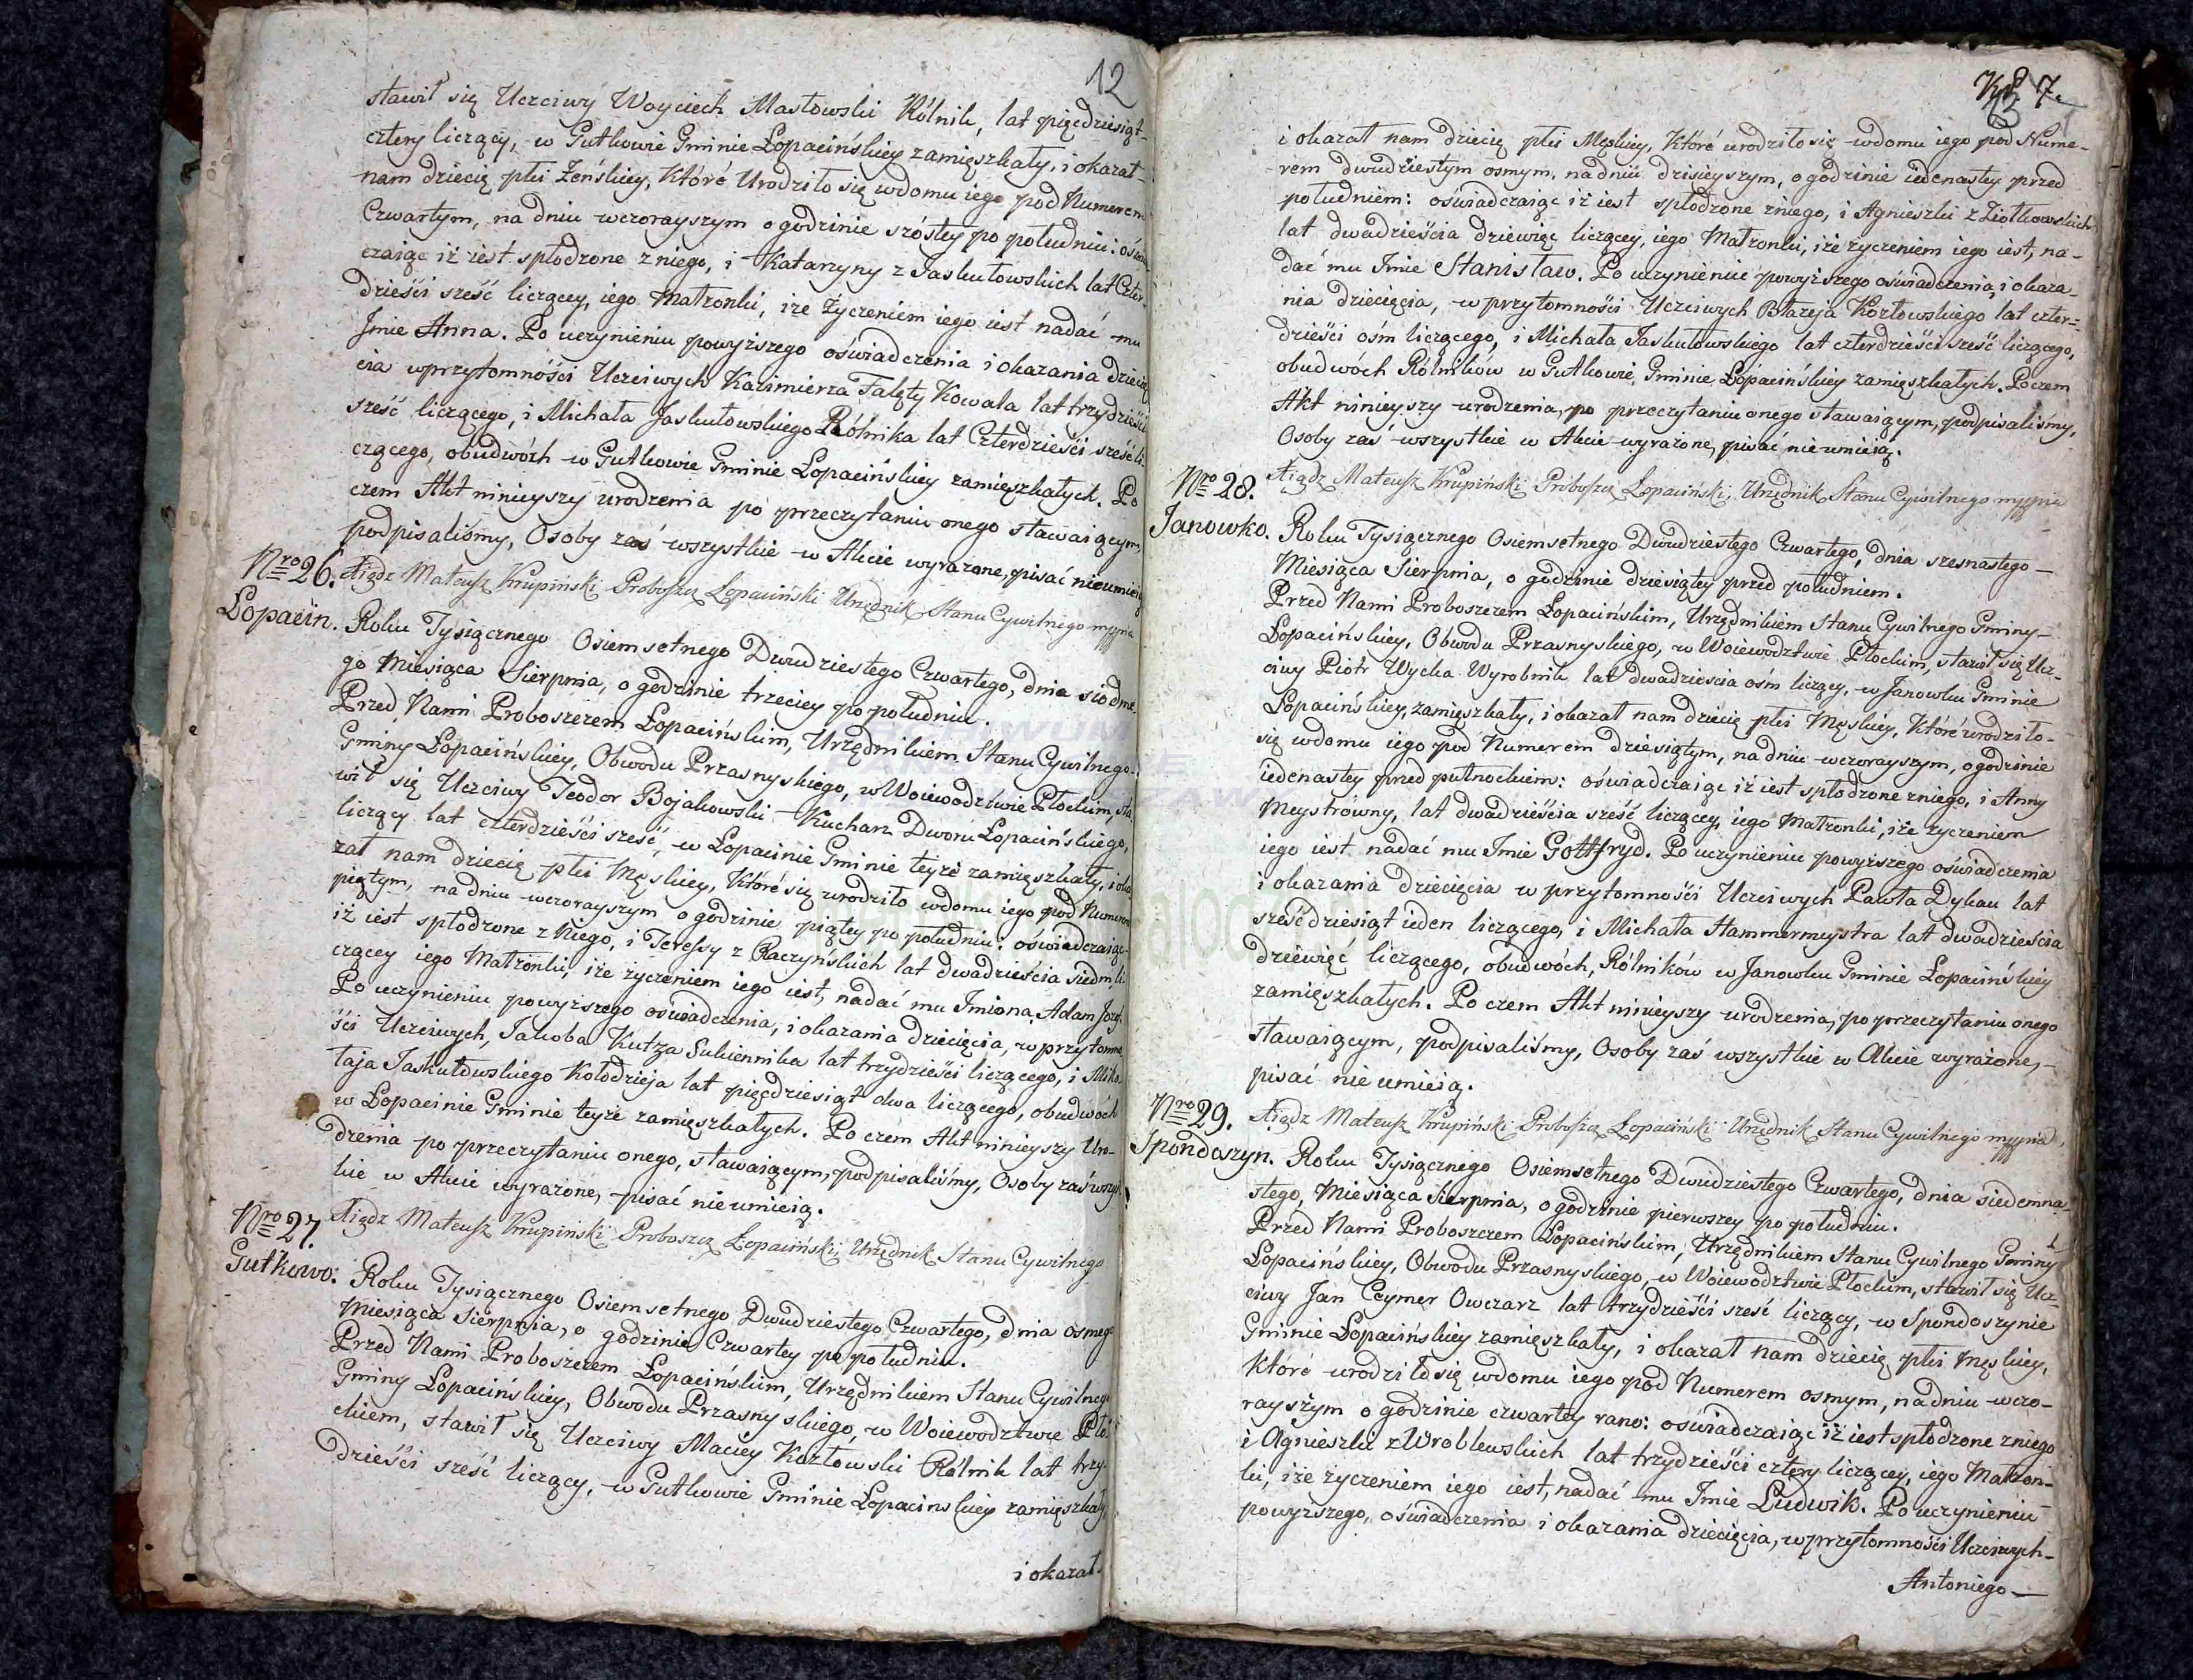 12
stawił się Uczciwy Woyciech Masłowski Rólnik, lat pięćdziesiąt-
cztery liczący, w Gutkowie Gminie Łopacińskiey zamięszkały, i okazał
nam dziecię płci Żeńskiey, które Urodziło się wdomu iego pod Numerem
Czwartym, na dniu wczorayszym o godzinie szóstey po południu: oświad
czaiąc iż iest spłodzone z niego, i Katarzyny z Jaskułowskich lat Czter-
dzieści sześć liczącey, iego Małżonki, iże życzeniem iego iest nadać mu
Jmie Anna. Po uczynieniu powyższego oświadczenia i okazania dziecię
cia wprzytomności Uczciwych Kazimierza Falęty Kowala lat trzydzieści
sześć liczącego, i Michała Jaskułowskiego Rólnika lat Czterdzieści sześć li-
czącego, obudwóch w Gutkowie Gminie Łopacińskiey zamięszkałych. Po
czem Akt ninieyszy urodzenia po przeczytaniu onego stawaiącym,
podpisaliśmy, Osoby zaś wszystkie w Akcie wyrażone, pisać nieumieią
Nro 26. Xiądz Mateusz Krupiński Proboszcz Łopaciński Urzędnik Stanu Cywilnego mppria
Łopacin. Roku Tysiącznego Osiemsetnego Dwudziestego Czwartego, dnia siodme-
go Miesiąca Sierpnia, o godzinie trzeciey po południu.
Przed Nami Proboszczem Łopacińskim, Urzędnikiem Stanu Cywilnego
Gminy Łopacińskiey, Obwodu Przasnyskiego, w Woiewodztwie Płockim, sta
wił się Uczciwy Teodor Bojakowski Kucharz Dworu Łopacińskiego,
liczący lat czterdzieści sześć, w Łopacinie Gminie teyże zamięszkały, i oka
zał nam dziecię płci Męskiey, które się urodziło wdomu iego pod Numerem
piątym, na dniu wczorayszym o godzinie piątey po południu: oświadczaiąc
iż iest spłodzone z Niego, i Teressy z Raczyńskich lat dwadzieścia siedm li-
czącey iego Małżonki, iże życzeniem iego iest, nadać mu Jmiona Adam Jozef.
Po uczynieniu powyższego oświadczenia, i okazania dziecięcia, w przytomno
ści Uczciwych, Jakoba Kutza Sukiennika lat trzydzieści liczącego, i Miko
łaja Jaskułowskiego Kołodzieja lat pięćdziesiąt dwa liczącego, obudwóch
w Łopacinie Gminie teyże zamięszkałych. Po czem Akt ninieyszy Uro-
dzenia po przeczytaniu onego, stawaiącym, podpisaliśmy, Osoby zaś wszyst
kie w Akcie wyrażone, pisać nieumieią.
Nro 27. Xiądz Mateusz Krupiński Proboszcz Łopaciński, Urzędnik Stanu Cywilnego
Gutkowo. Roku Tysiącznego Osiemsetnego Dwudziestego Czwartego, dnia osmego
Miesiąca Sierpnia, o godzinie Czwartey po południu.
Przed Nami Proboszczem Łopacińskim, Urzędnikiem Stanu Cywilnego
Gminy Łopacińskiey, Obwodu Przasnyskiego, w Woiewodztwie Pło
ckiem, stawił się Uczciwy Maciey Kozłowski Rólnik lat trzy-
dzieści sześć liczący, w Gutkowie Gminie Łopacinskiey zamięszkały,
i okazał
7.
i okazał nam dziecię płci Męskiey, Które urodziło się wdomu iego pod Nume-
rem dwudziestym osmym, na dniu dzisieyszym, o godzinie iedenastey przed
południem: oświadczaiąc iż iest spłodzone zniego, i Agnieszki z Ziołkowskich
lat dwadzieścia dziewięć liczącey, iego Małżonki, iże życzeniem iego iest, na-
dać mu Jmie Stanisław. Po uczynieniu powyższego oświadczenia, i okaza-
nia dziecięcia, w przytomności Uczciwych Błażeja Kozłowskiego lat czter-
dzieści ośm liczącego, i Michała Jaskułowskiego lat czterdzieści sześć liczącego,
obudwóch Rólników w Gutkowie, Gminie Łopacińskiey zamięszkałych. Poczem
Akt ninieyszy urodzenia, po przeczytaniu onego stawaiącym, podpisaliśmy,
Osoby zaś wszystkie w Akcie wyrażone, pisać nieumieią.
Nro 28. Xiądz Mateusz Krupiński Proboszcz Łopaciński, Urzędnik Stanu Cywilnego mppria
Janowko. Roku Tysiącznego Osiemsetnego Dwudziestego Czwartego, dnia szesnastego
Miesiąca Sierpnia, o godzinie dziesiątey przed południem.
Przed Nami Proboszczem Łopacińskim, Urzędnikiem Stanu Cywilnego Gminy
Łopacińskiey, Obwodu Przasnyskiego, w Woiewodztwie Płockim, stawił się Ucz-
ciwy Piotr Wycka Wyrobnik lat dwadzieścia ośm liczący, w Janowku Gminie
Łopacińskiey, zamięszkały, i okazał nam dziecię płci Męskiey, Które urodziło-
się wdomu iego pod Numerem dziesiątym, na dniu wczorayszym, o godzinie
iedenastey przed pułnockiem: oświadczaiąc iż iest spłodzone zniego, i Anny
Meystrówny, lat dwadzieścia sześć liczącey, iego Małżonki, iże życzeniem
iego iest nadać mu Jmie Gottfryd. Po uczynieniu powyższego oświadczenia
i okazania dziecięcia w przytomności Uczciwych Pawła Dykau lat
sześćdziesiąt ieden liczącego, i Michała Hammermeystra lat dwadzieścia
dziewięć liczącego, obudwóch, Rólników w Janowku Gminie Łopacińskiey
zamięszkałych. Po czem Akt ninieyszy urodzenia, po przeczytaniu onego
stawaiącym, podpisaliśmy, Osoby zaś wszystkie w Akcie wyrażone,
pisać nie umieią.
Nro 29. Xiądz Mateusz Krupiński Proboszcz Łopaciński Urzędnik Stanu Cywilnego mppria
Spondoszyn. Roku Tysiącznego Osiemsetnego Dwudziestego Czwartego, dnia siedemna-
stego, Miesiąca Sierpnia, o godzinie pierwszey po południu.
Przed Nami Proboszczem Łopacińskim, Urzędnikiem Stanu Cywilnego Gminy
Łopacińskiey, Obwodu Przasnyskiego, w Woiewodztwie Płockim, stawił się Ucz-
ciwy Jan Ceymer Owczarz lat trzydzieści sześć liczący, w Spondoszynie
Gminie Łopacińskiey zamięszkały, i okazał nam dziecię płci Męskiey,
Które urodziło się wdomu iego pod Numerem osmym, na dniu wczo-
rayszym o godzinie czwartey rano: oświadczaiąc iż iest spłodzone zniego
i Agnieszki zWroblewskich lat trzydzieści cztery liczącey, iego Małżon-
ki, iże życzeniem iego iest, nadać mu Jmie Ludwik. Po uczynieniu
powyższego, oświadczenia i okazania dziecięcia, w przytomności Uczciwych
Antoniego